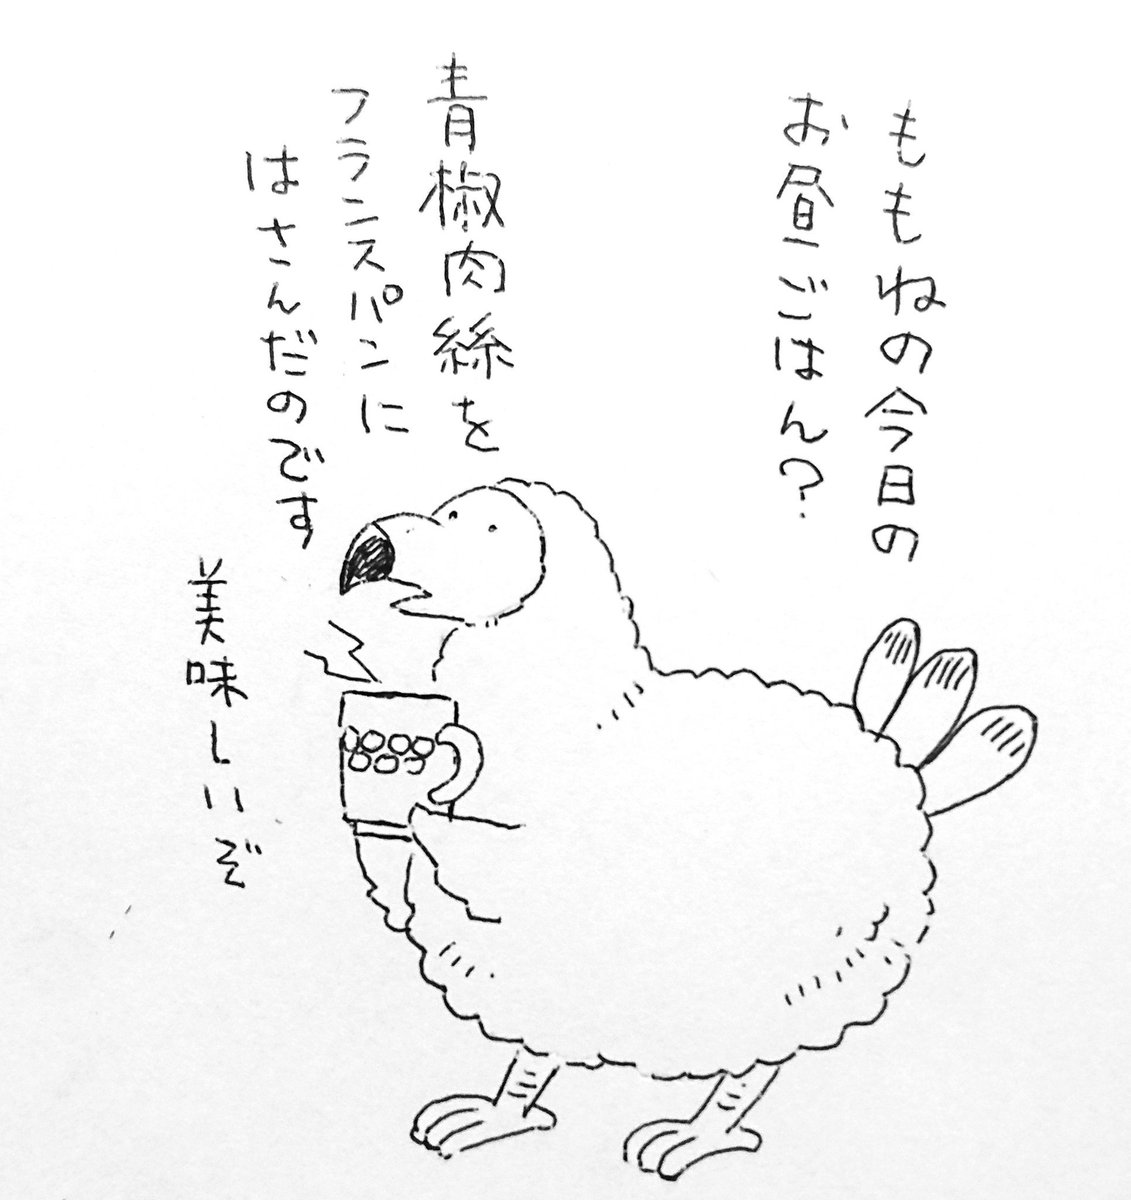 ももねの今日の
お昼ごはん?
青椒肉絲を
フランスパンに
はさんだのです
美味しいぞ